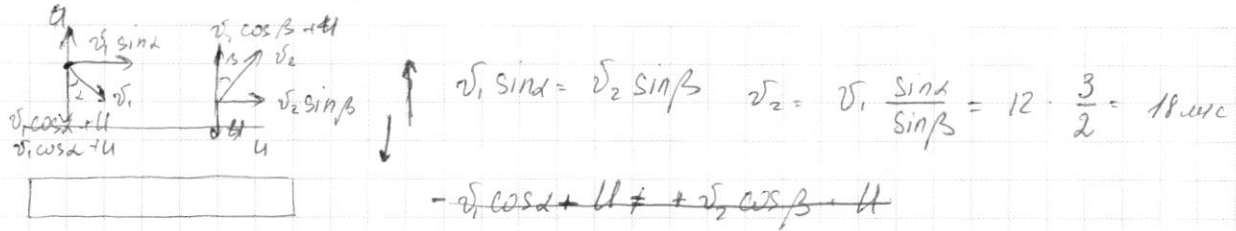 U
v₁ sinα
α
v₁
v₁cosα + U
v₁cosα + U
v₂ cosβ + U
β
v₂
v₂ sinβ
U
U
v₁ sinα = v₂ sinβ v₂ = v₁ sinα/sinβ = 12 · 3/2 = 18 м/с
- v₁ cosα + U ≠ + v₂ cosβ - U